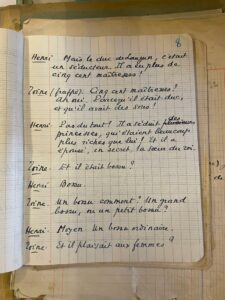 8
Henri: Mais le duc de Lauzun, c'était
un séducteur. Il a eu plus de
cinq cent maîtresses!
Zoïne (frappé). Cinq cent maîtresses!
Ah oui. Parce qu'il était duc,
et qu'il avait des sous!
Henri: Pas du tout! Il a séduit des
princesses, qui étaient beaucoup
plus riches que lui! Et il a
épousé, en secret, la sœur du roi.
Zoïne: Et il était bossu?
Henri: Bossu.
Zoïne: Un bossu comment? Un grand
bossu, ou un petit bossu?
Henri: Moyen. Un bossu ordinaire.
Zoïne: Et il plaisait aux femmes?